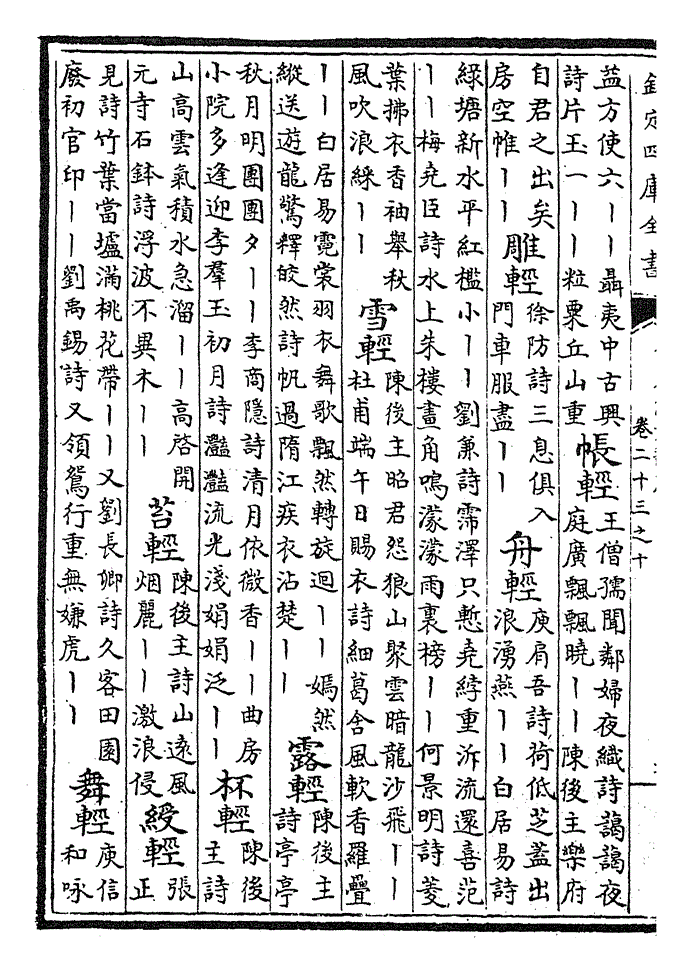 欽定四庫全書
卷二十三之十
益方使六丨丨聶夷中古興
詩片玉一丨丨粒粟丘山重
帳輕
王僧孺聞鄰婦夜織詩藹藹夜
庭廣飄飄曉丨丨陳後主樂府
自君之出矣
房空帷丨丨
雕輕
徐防詩三息俱入
門車服盡丨丨
舟輕
庾肩吾詩荷低芝蓋出
浪湧燕丨丨白居易詩
綠塘新水平紅檻小丨丨劉兼詩霈澤只慙堯綍重泝流還喜范
丨丨梅堯臣詩水上朱樓畫角鳴濛濛雨裏榜丨丨何景明詩菱
葉拂衣香袖舉秋
風吹浪綵丨丨
雪輕
陳後主昭君怨狼山聚雲暗龍沙飛丨丨
杜甫端午日賜衣詩細葛含風軟香羅疊
丨丨白居易霓裳羽衣舞歌飄然轉旋迴丨丨嫣然
縱送遊龍驚釋皎然詩帆過隋江疾衣沾楚丨丨
露輕
陳後主
詩亭亭
秋月明團團夕丨丨李商隱詩清月依微香丨丨曲房
小院多逢迎李羣玉初月詩灩灩流光淺娟娟泛丨丨
杯輕
陳後
主詩
山高雲氣積水急溜丨丨高啓開
元寺石鉢詩浮波不異木丨丨
苔輕
陳後主詩山遠風
烟麗丨丨激浪侵
綬輕
張
正
見詩竹葉當壚滿桃花帶丨丨又劉長卿詩久客田園
廢初官印丨丨劉禹錫詩又領鴛行重無嫌虎丨丨
舞輕
庾信
和咏